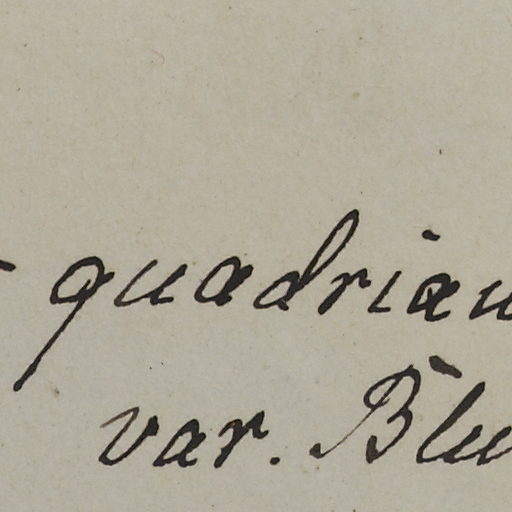 quadriau
var. Blu